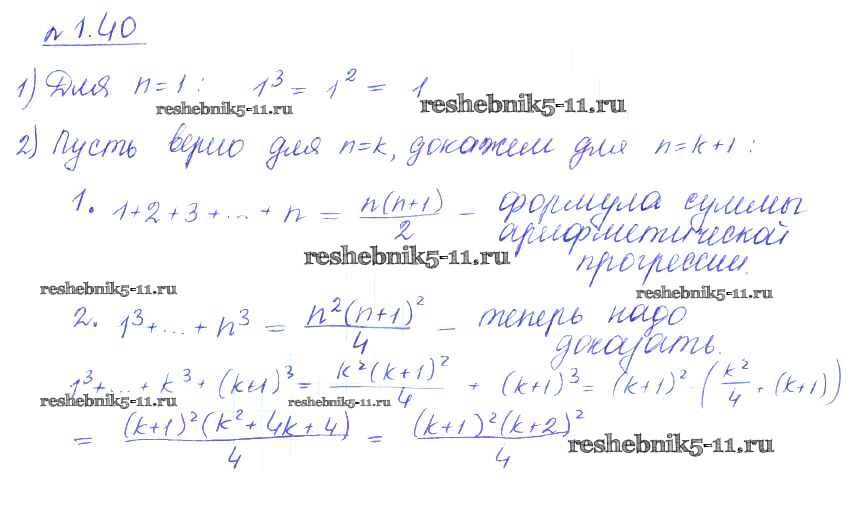 № 1.40
1) Для n=1: 1³ = 1² = 1
reshebnik5-11.ru reshebnik5-11.ru
2) Пусть верно для n=k, докажем для n=k+1:
1. 1+2+3+...+n = n(n+1)/2 – формула суммы
арифметической
reshebnik5-11.ru прогрессии.
reshebnik5-11.ru reshebnik5-11.ru
2. 1³+...+n³ = n²(n+1)²/4 – теперь надо
доказать.
1³+...+k³+(k+1)³ = k²(k+1)²/4 + (k+1)³ = (k+1)²·(k²/4+(k+1))
reshebnik5-11.ru reshebnik5-11.ru
= (k+1)²(k²+4k+4)/4 = (k+1)²(k+2)²/4
reshebnik5-11.ru